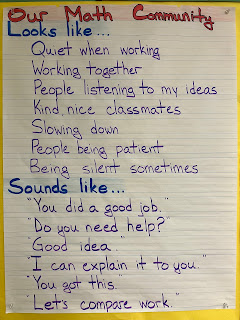 Our Math Community
Looks like...
Quiet when working
Working together
People listening to my ideas
Kind, nice classmates
Slowing down
People being patient
Being silent sometimes
Sounds like...
"You did a good job."
"Do you need help?"
"Good idea."
"I can explain it to you."
"You got this."
"Let's compare work."